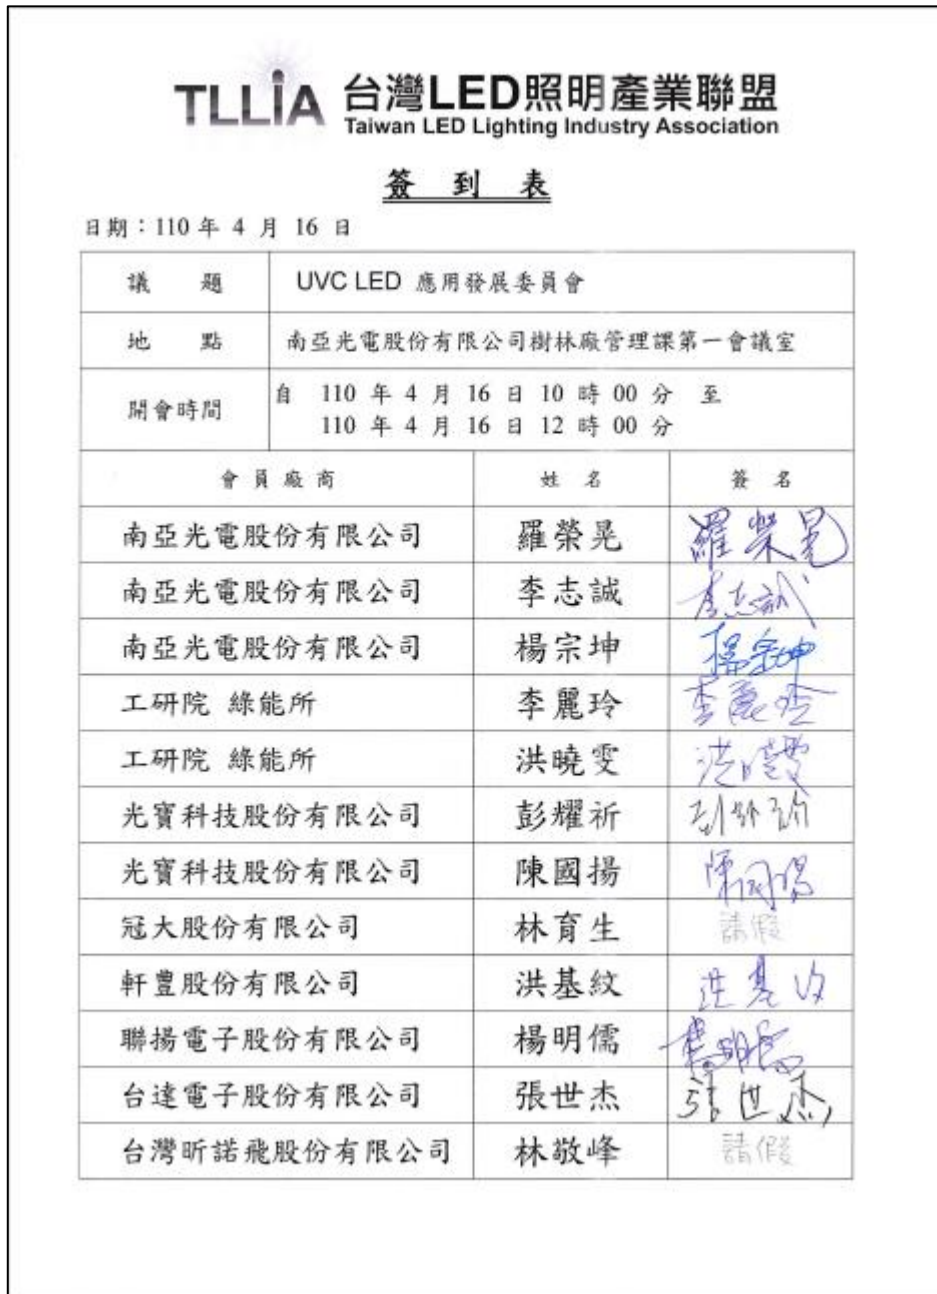 TLLiA 台灣LED照明產業聯盟
Taiwan LED Lighting Industry Association
簽 到 表
日期：110 年 4 月 16 日
議 題 UVC LED 應用發展委員會
地 點 南亞光電股份有限公司樹林廠管理課第一會議室
開會時間 自 110 年 4 月 16 日 10 時 00 分 至
110 年 4 月 16 日 12 時 00 分
會 員 廠 商 姓 名 簽 名
南亞光電股份有限公司 羅榮晃 羅榮晃
南亞光電股份有限公司 李志誠 李志誠
南亞光電股份有限公司 楊宗坤 楊宗坤
工研院 綠能所 李麗玲 李麗玲
工研院 綠能所 洪曉雯 洪曉雯
光寶科技股份有限公司 彭耀祈
光寶科技股份有限公司 陳國揚 陳國揚
冠大股份有限公司 林育生 請假
軒豊股份有限公司 洪基紋 洪基紋
聯揚電子股份有限公司 楊明儒 楊明儒
台達電子股份有限公司 張世杰 張世杰
台灣昕諾飛股份有限公司 林敬峰 請假